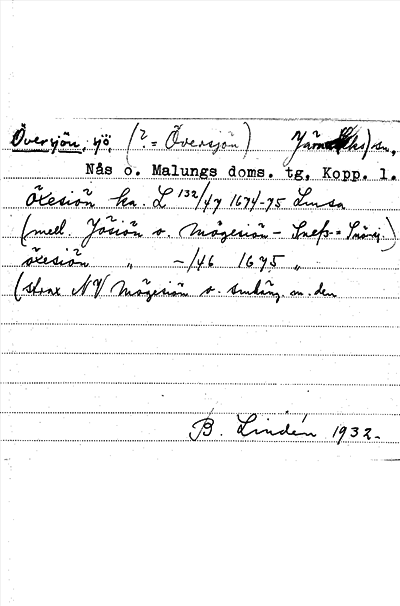 Överjön, sjö, (? = Översjön) Järna sn,
Nås o. Malungs doms. tg, Kopp. l.
Öresiön ka. L 132/47 1674-75 Lmsa
(mell. Jösiön o. Mögesiön -
öresiön " -/46 1675 "
(strax NV Mögesiön o. m. den
B. Lindén 1932.